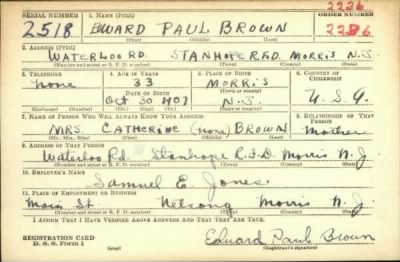 SERIAL NUMBER 1. NAME (Print) ORDER NUMBER
2226
2518 EDWARD PAUL BROWN 2226
(First) (Middle) (Last)
2. ADDRESS (Print)
WATERLOO RD. STANHOPE R.F.D. MORRIS N.J.
(Number and street or R. F. D. number) (Town) (County) (State)
3. TELEPHONE 4. AGE IN YEARS 5. PLACE OF BIRTH 6. COUNTRY OF CITIZENSHIP
None 33 MORRIS
DATE OF BIRTH (Town or county)
Oct 30 1907 N.J. U.S.A.
(Exchange) (Number) (Mo.) (Day) (Yr.) (State or country)
7. NAME OF PERSON WHO WILL ALWAYS KNOW YOUR ADDRESS 8. RELATIONSHIP OF THAT PERSON
MRS. CATHERINE (non) BROWN Mother
(Mr., Mrs., Miss) (First) (Middle) (Last)
9. ADDRESS OF THAT PERSON
Waterloo Rd. Stanhope R.F.D. Morris N.J.
(Number and street or R. F. D. number) (Town) (County) (State)
10. EMPLOYER'S NAME
Samuel E. Jones
11. PLACE OF EMPLOYMENT OR BUSINESS
Main St Netcong Morris N.J.
(Number and street or R. F. D. number) (Town) (County) (State)
I AFFIRM THAT I HAVE VERIFIED ABOVE ANSWERS AND THAT THEY ARE TRUE.
REGISTRATION CARD
D. S. S. Form 1
Edward Paul Brown
(Registrant's signature)